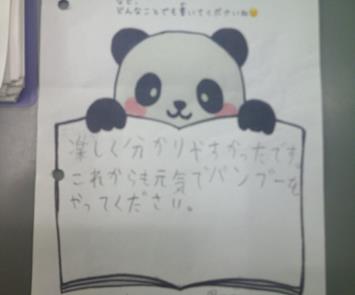 など、
どんなことでも書いてくださいね
楽しく分かりやすかったです。
これからも元気でバンブーを
やってください。